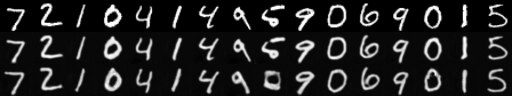 7 2 1 0 4 1 4 9 5 9 0 6 9 0 1 5
7 2 1 0 4 1 4 9 5 9 0 6 9 0 1 5
7 2 1 0 4 1 4 9 9 0 6 9 0 1 5